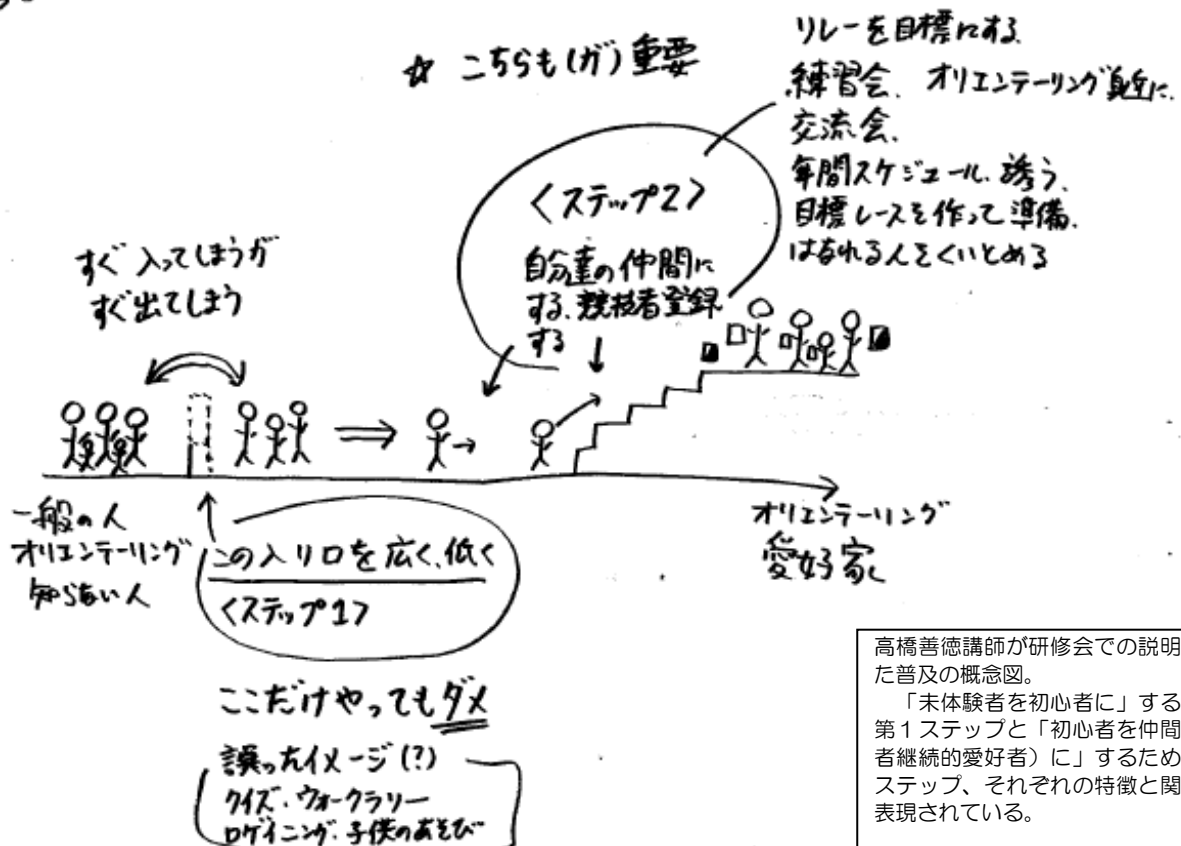 ☆ こちらも(が)重要
リレーを目標にする
練習会、オリエンテーリング身近に、
交流会、
年間スケジュール、誘う、
目標レースを作って準備、
はなれる人をくいとめる
<ステップ2>
自分達の仲間に
する、競技者登録
する
すぐ入ってしまうが
すぐ出てしまう
一般の人
オリエンテーリング
知らない人
この入り口を広く、低く
<ステップ1>
オリエンテーリング
愛好家
ここだけやってもダメ
誤ったイメージ(?)
クイズ・ウォークラリー
ロゲイニング・子供のあそび
高橋善徳講師が研修会での説明
た普及の概念図。
「未体験者を初心者に」する
第1ステップと「初心者を仲間
者継続的愛好者)に」するため
ステップ、それぞれの特徴と関
表現されている。